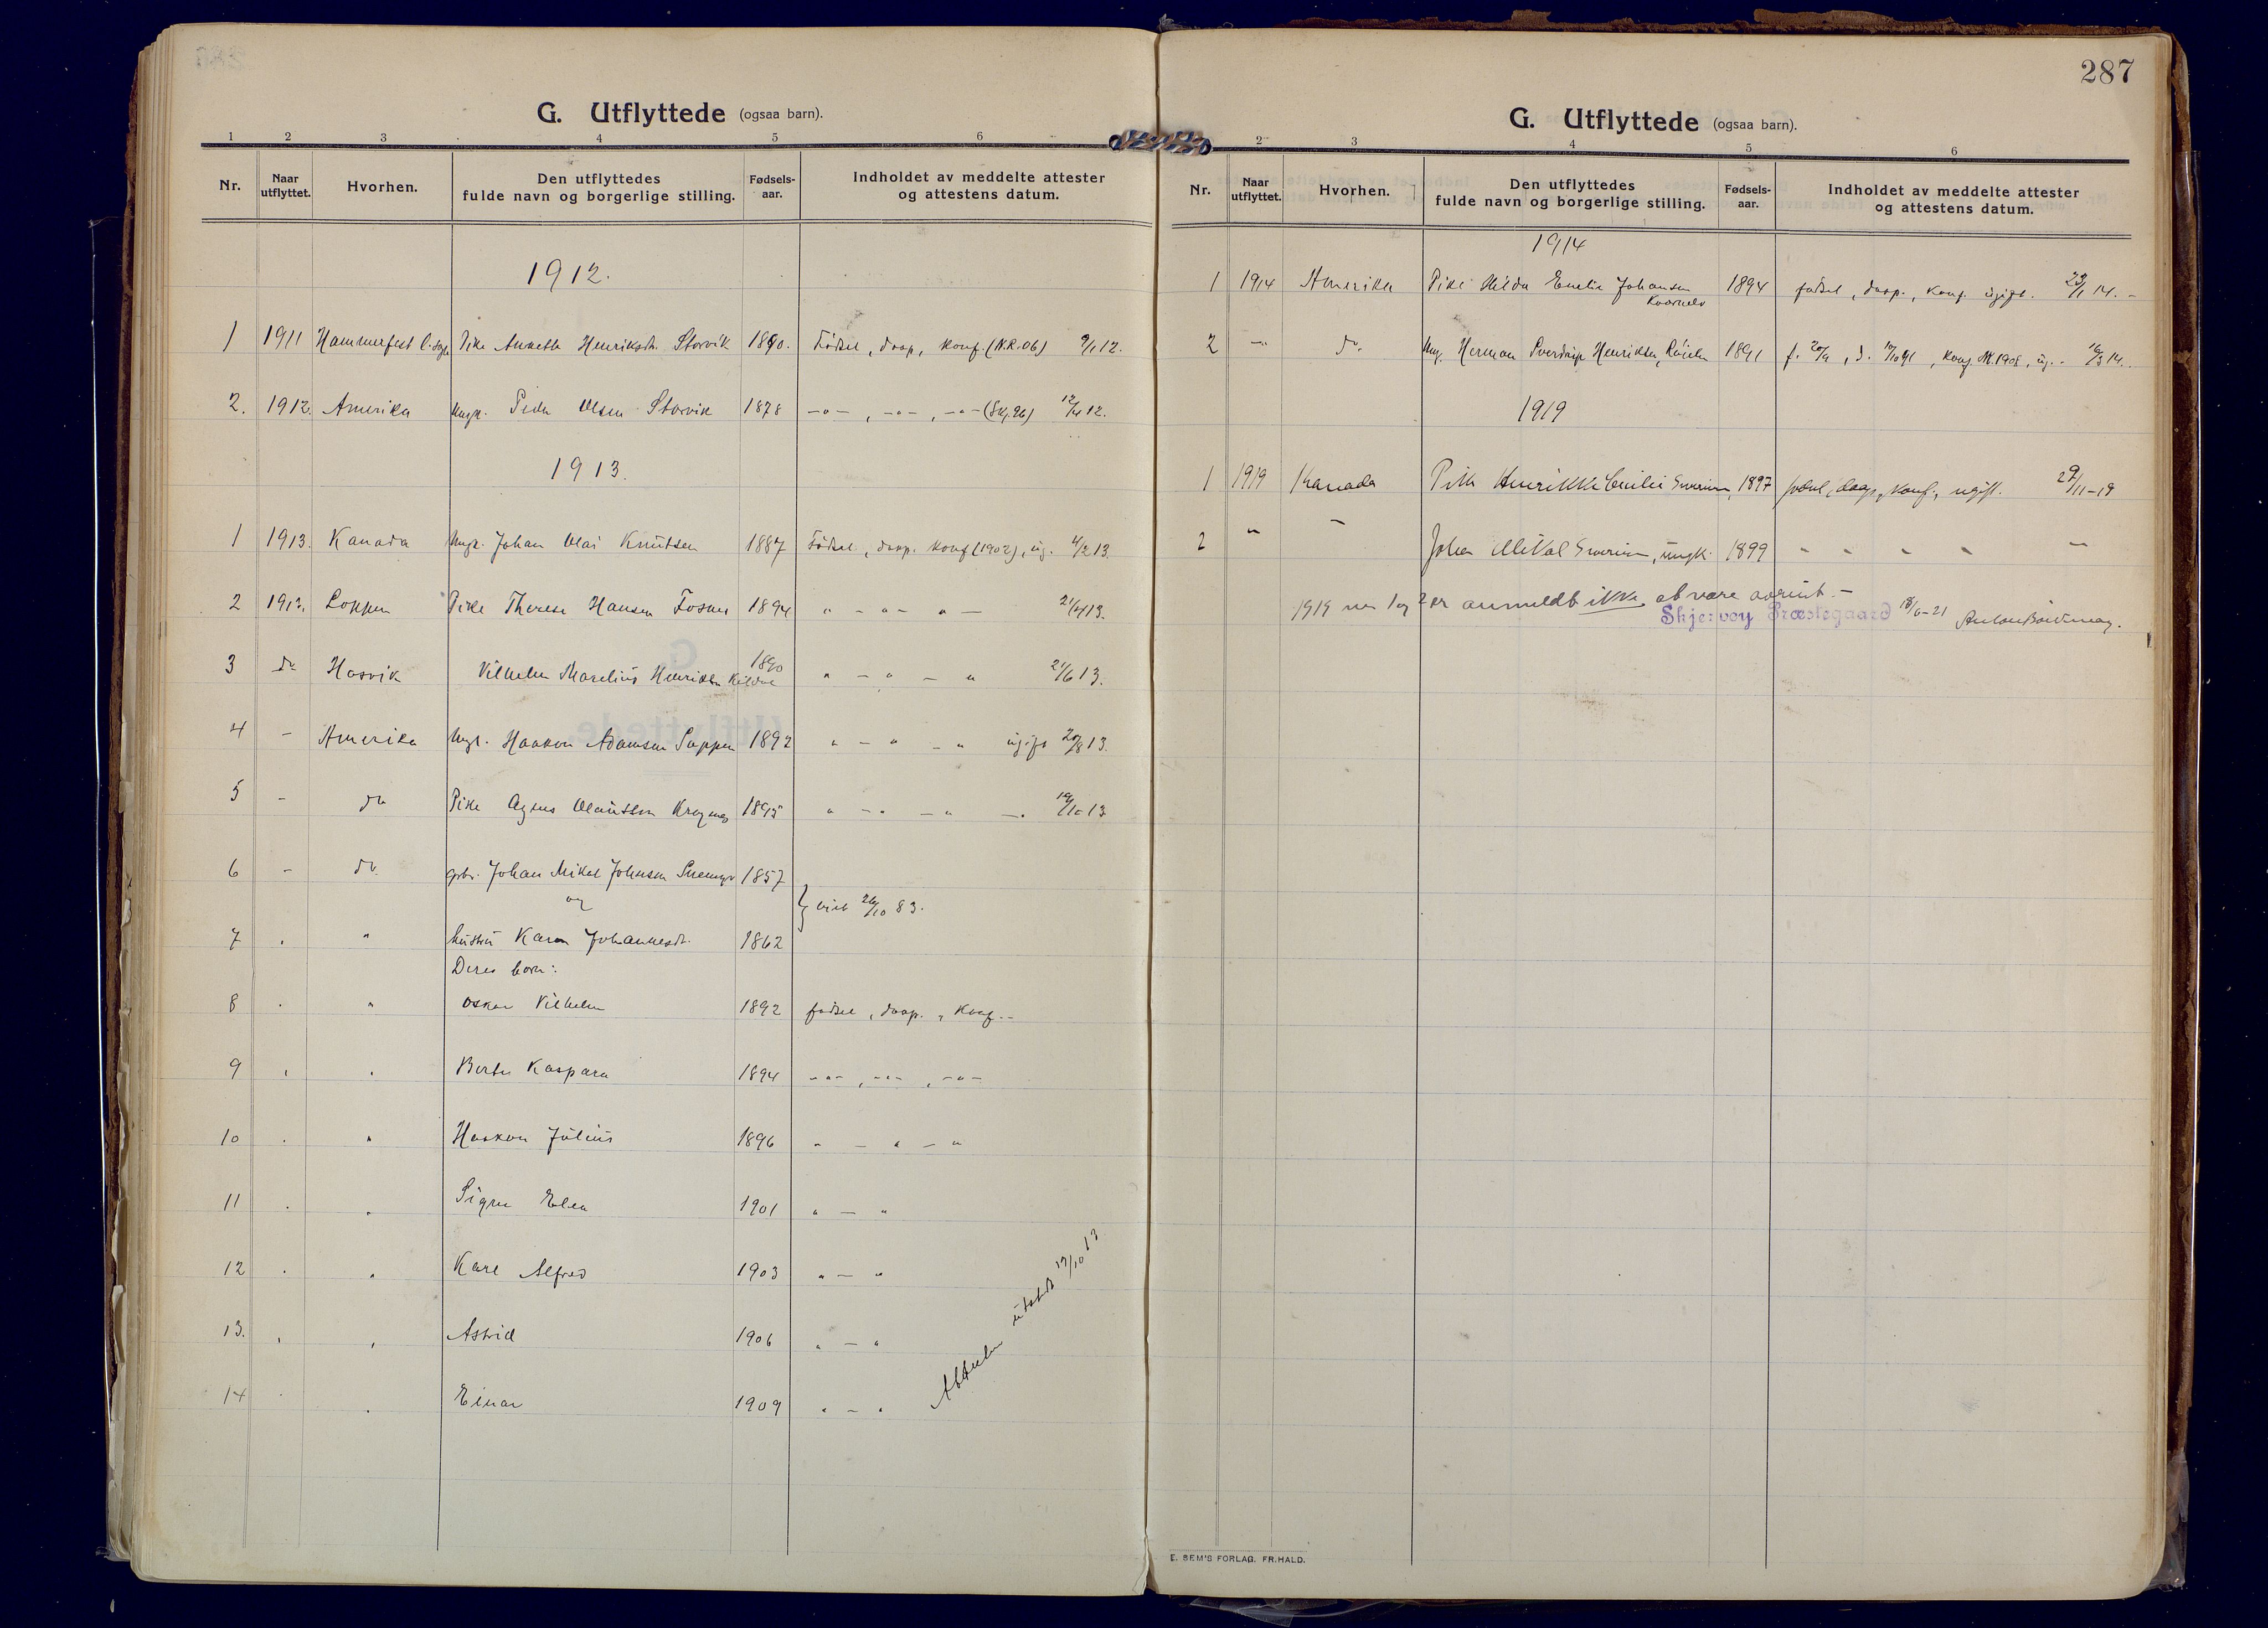 G. Utflyttede (ogsaa barn).
1 2 3 4 5 6
Nr. Naar utflyttet. Hvorhen. Den utflyttedes fulde navn og borgerlige stilling. Fødsels-aar. Indholdet av meddelte attester og attestens datum.
1912.
1 1911 Hammerfest Pike Annette Henriksdt. Storvik 1890. Fødsel, daap, konf. (N.R. 06) 9/1 12.
2. 1912. Amerika Ungk. Peder Olsen Storvik 1878 -"-, -"-, -"- (Skj. 96) 12/4 12.
1913.
1 1913. Kanada Ungk. Johan Olai Knutsen 1887 Fødsel, daap. konf (1902), ug. 4/2 13.
2 1913. Loppen Pike Therese Hansen 1894 " - " - " - 21/4 13.
3 do Hasvik Vilhelm Marelius Henriksen Kildal 1890 " - " - " 21/6 13.
4 - Amerika Ungk. Haakon Adamsen Suppen 1892 " - " - " ugift 20/8 13.
5 - do Pike Agnes Olautsen 1895 " - " - " - " 13
6 - do gbr. Johan Mikal Johnsen 1857
og
} viet 26/10 83.
7 . " hustru Karen Johannesdt. 1862
Deres born:
8 . " Oskar Vilhelm 1892 fødsel, daap., konf. -
9 , . Berta Kaspara 1894 -"-, -"-, -"-
10 . " Haakon Julius 1896 " - " - "
11 . " Signe Elea 1901 " - "
12 . " Karl Alfred 1903 " - "
13. , , Astrid 1906 " - "
14 . . Einar 1909 " - "
Attester utstedt 17/10 13
287
G. Utflyttede (ogsaa barn).
2 3 4 5 6
Nr. Naar utflyttet. Hvorhen. Den utflyttedes fulde navn og borgerlige stilling. Fødsels-aar. Indholdet av meddelte attester og attestens datum.
1914
1 1914 Amerika Pike Hilda Emelie Johansen 1894 fødsel, daap., konf. ugift. 23/1 14. -
Kvænelv
2 -"- do. Ung. Herman Sverdrup Henriksen, 1891 f. 20/9, d. 17/10 91, konf. 1908, ug. - 16/3 14.
1919
1 1919 Kanada Pike Henrikke Cecilie 1897 fødsel, daap, konf., ugift. 29/11-19
2 " - Johan Mikal, ungk. 1899 " " " " "
1919 nr 1 og 2 er anmeldt ikke at være avreist. -
Skjervøy Præstegaard 18/6-21
E. SEM'S FORLAG. FR. HALD.